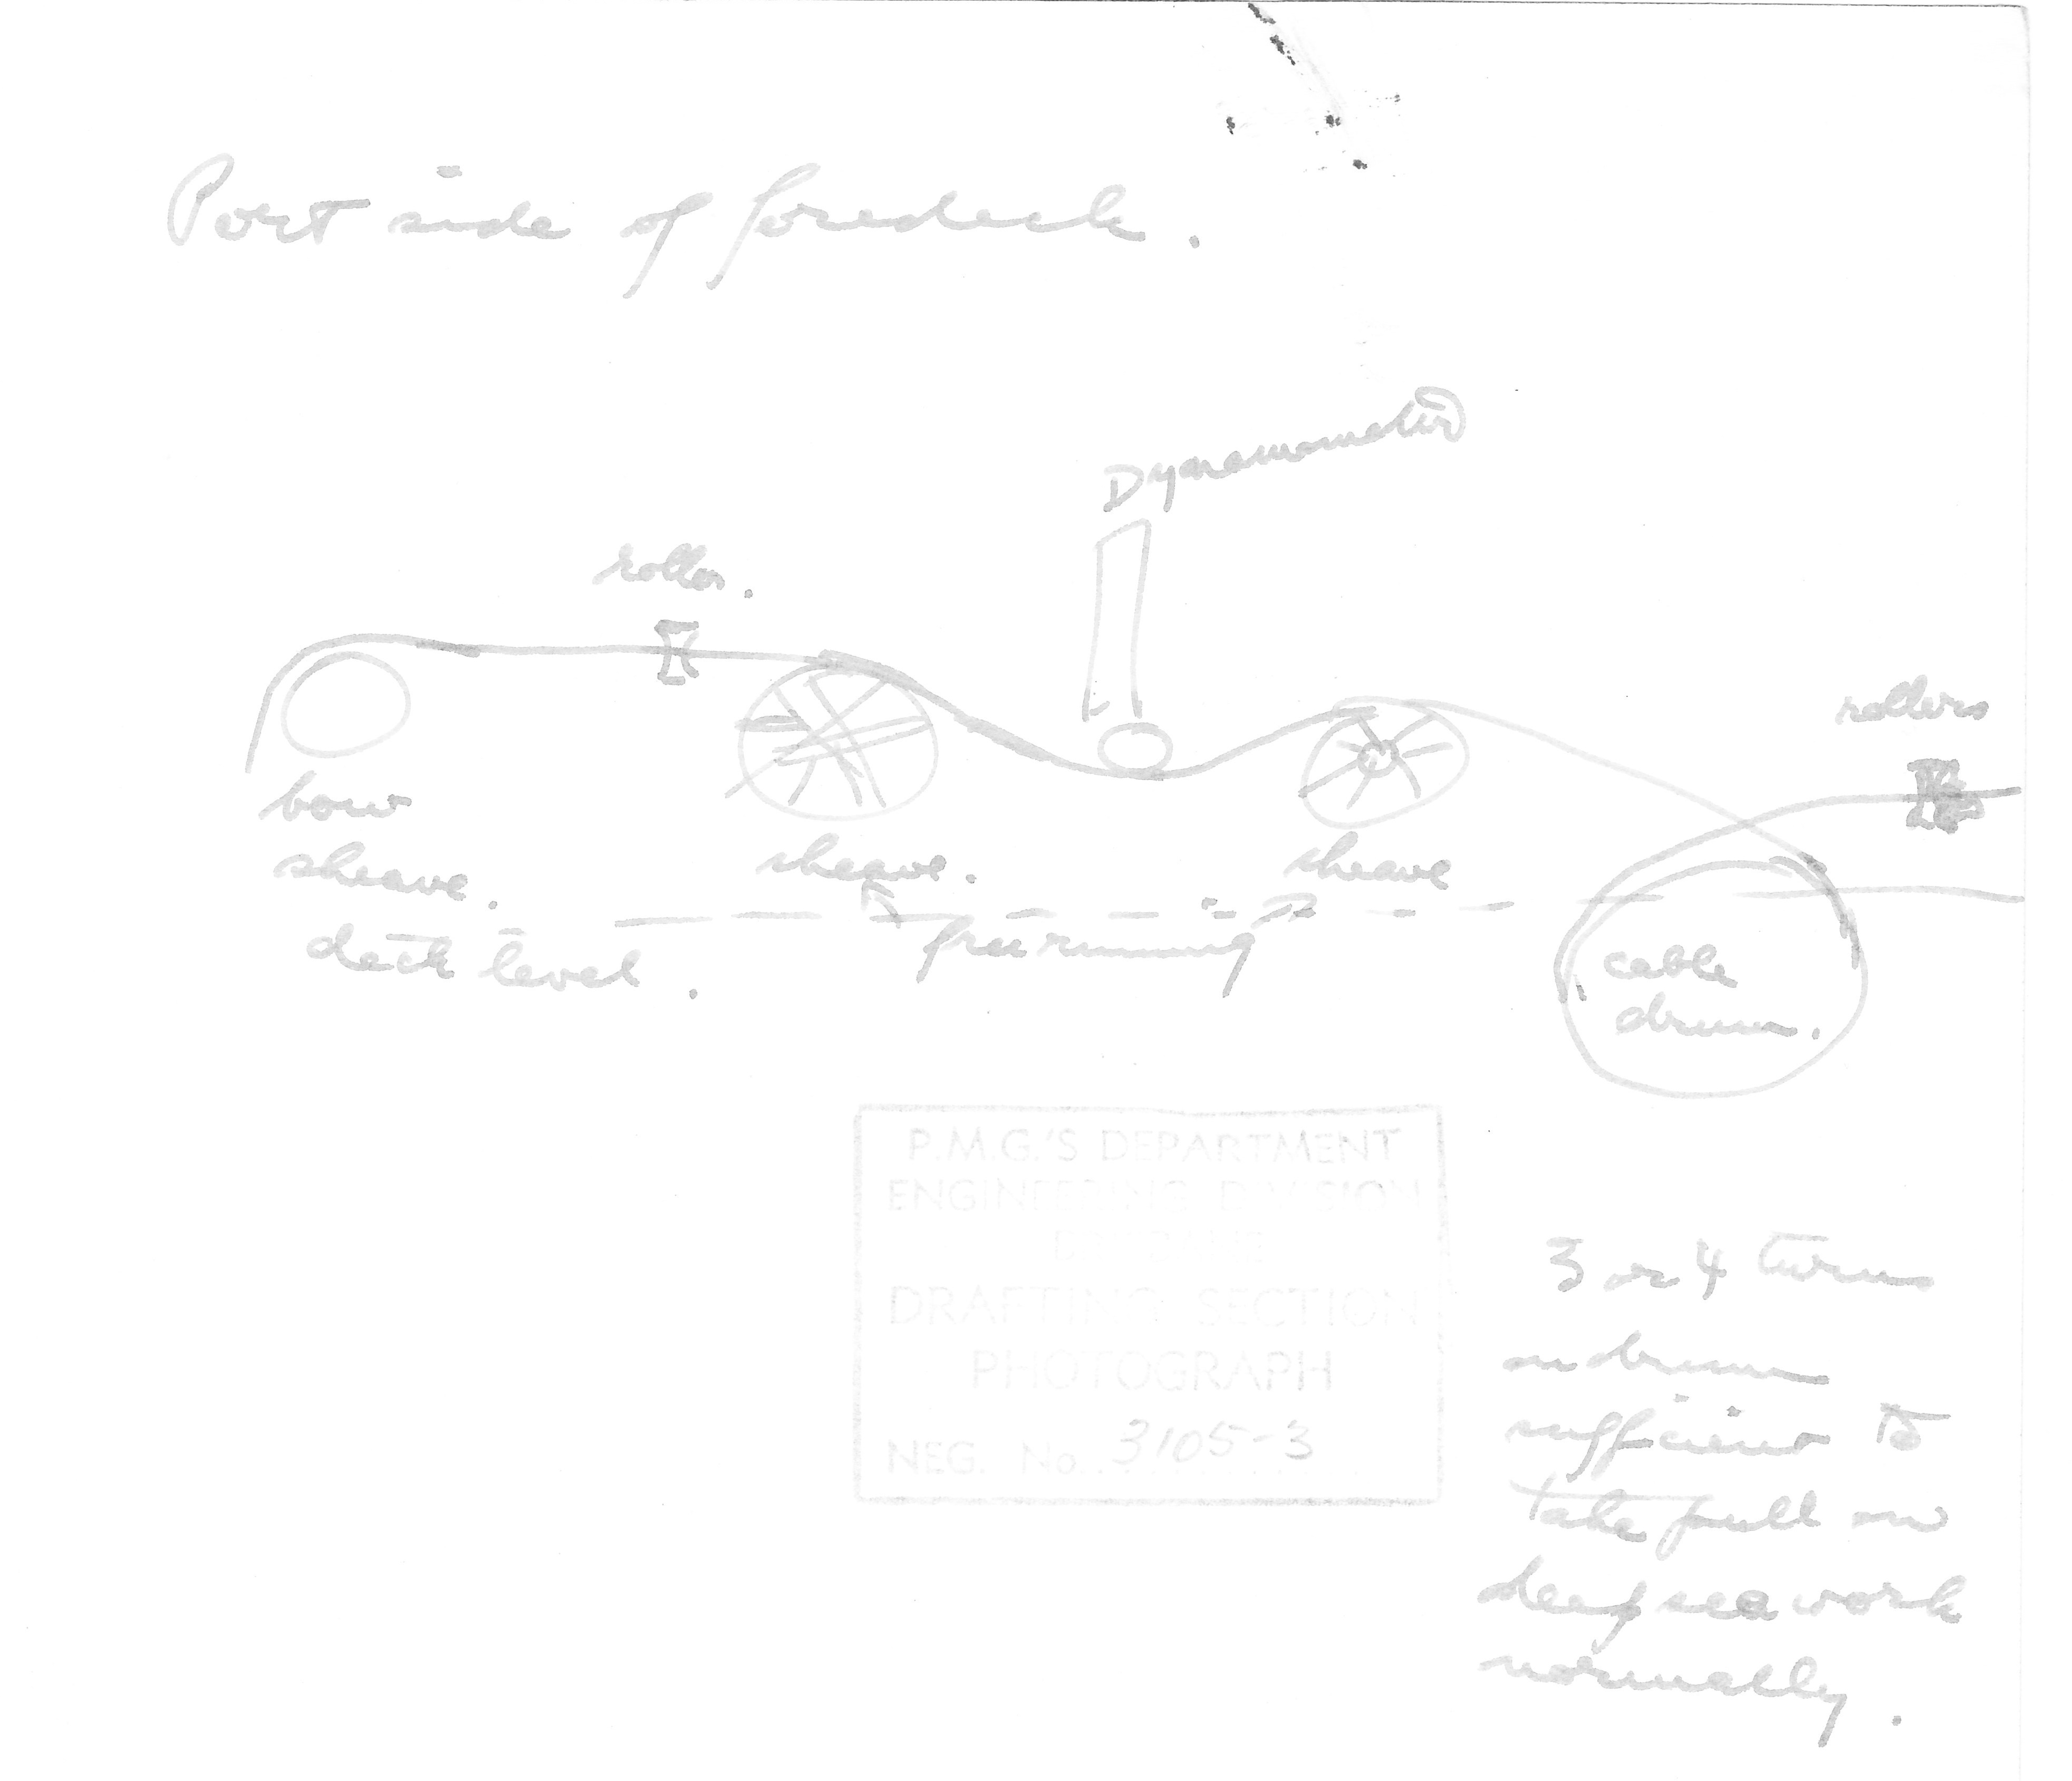 Port side of foredeck.
Dynamometer
roller.
rollers
bow
sheave.
sheave.
sheave
deck level.
free running
cable
drum.
P.M.G.'S DEPARTMENT
ENGINEERING DIVISION
DRAFTING SECTION
PHOTOGRAPH
NEG. No. 3105-3
3 or 4 turns
on drum
sufficient to
take pull on
deep sea work
normally.